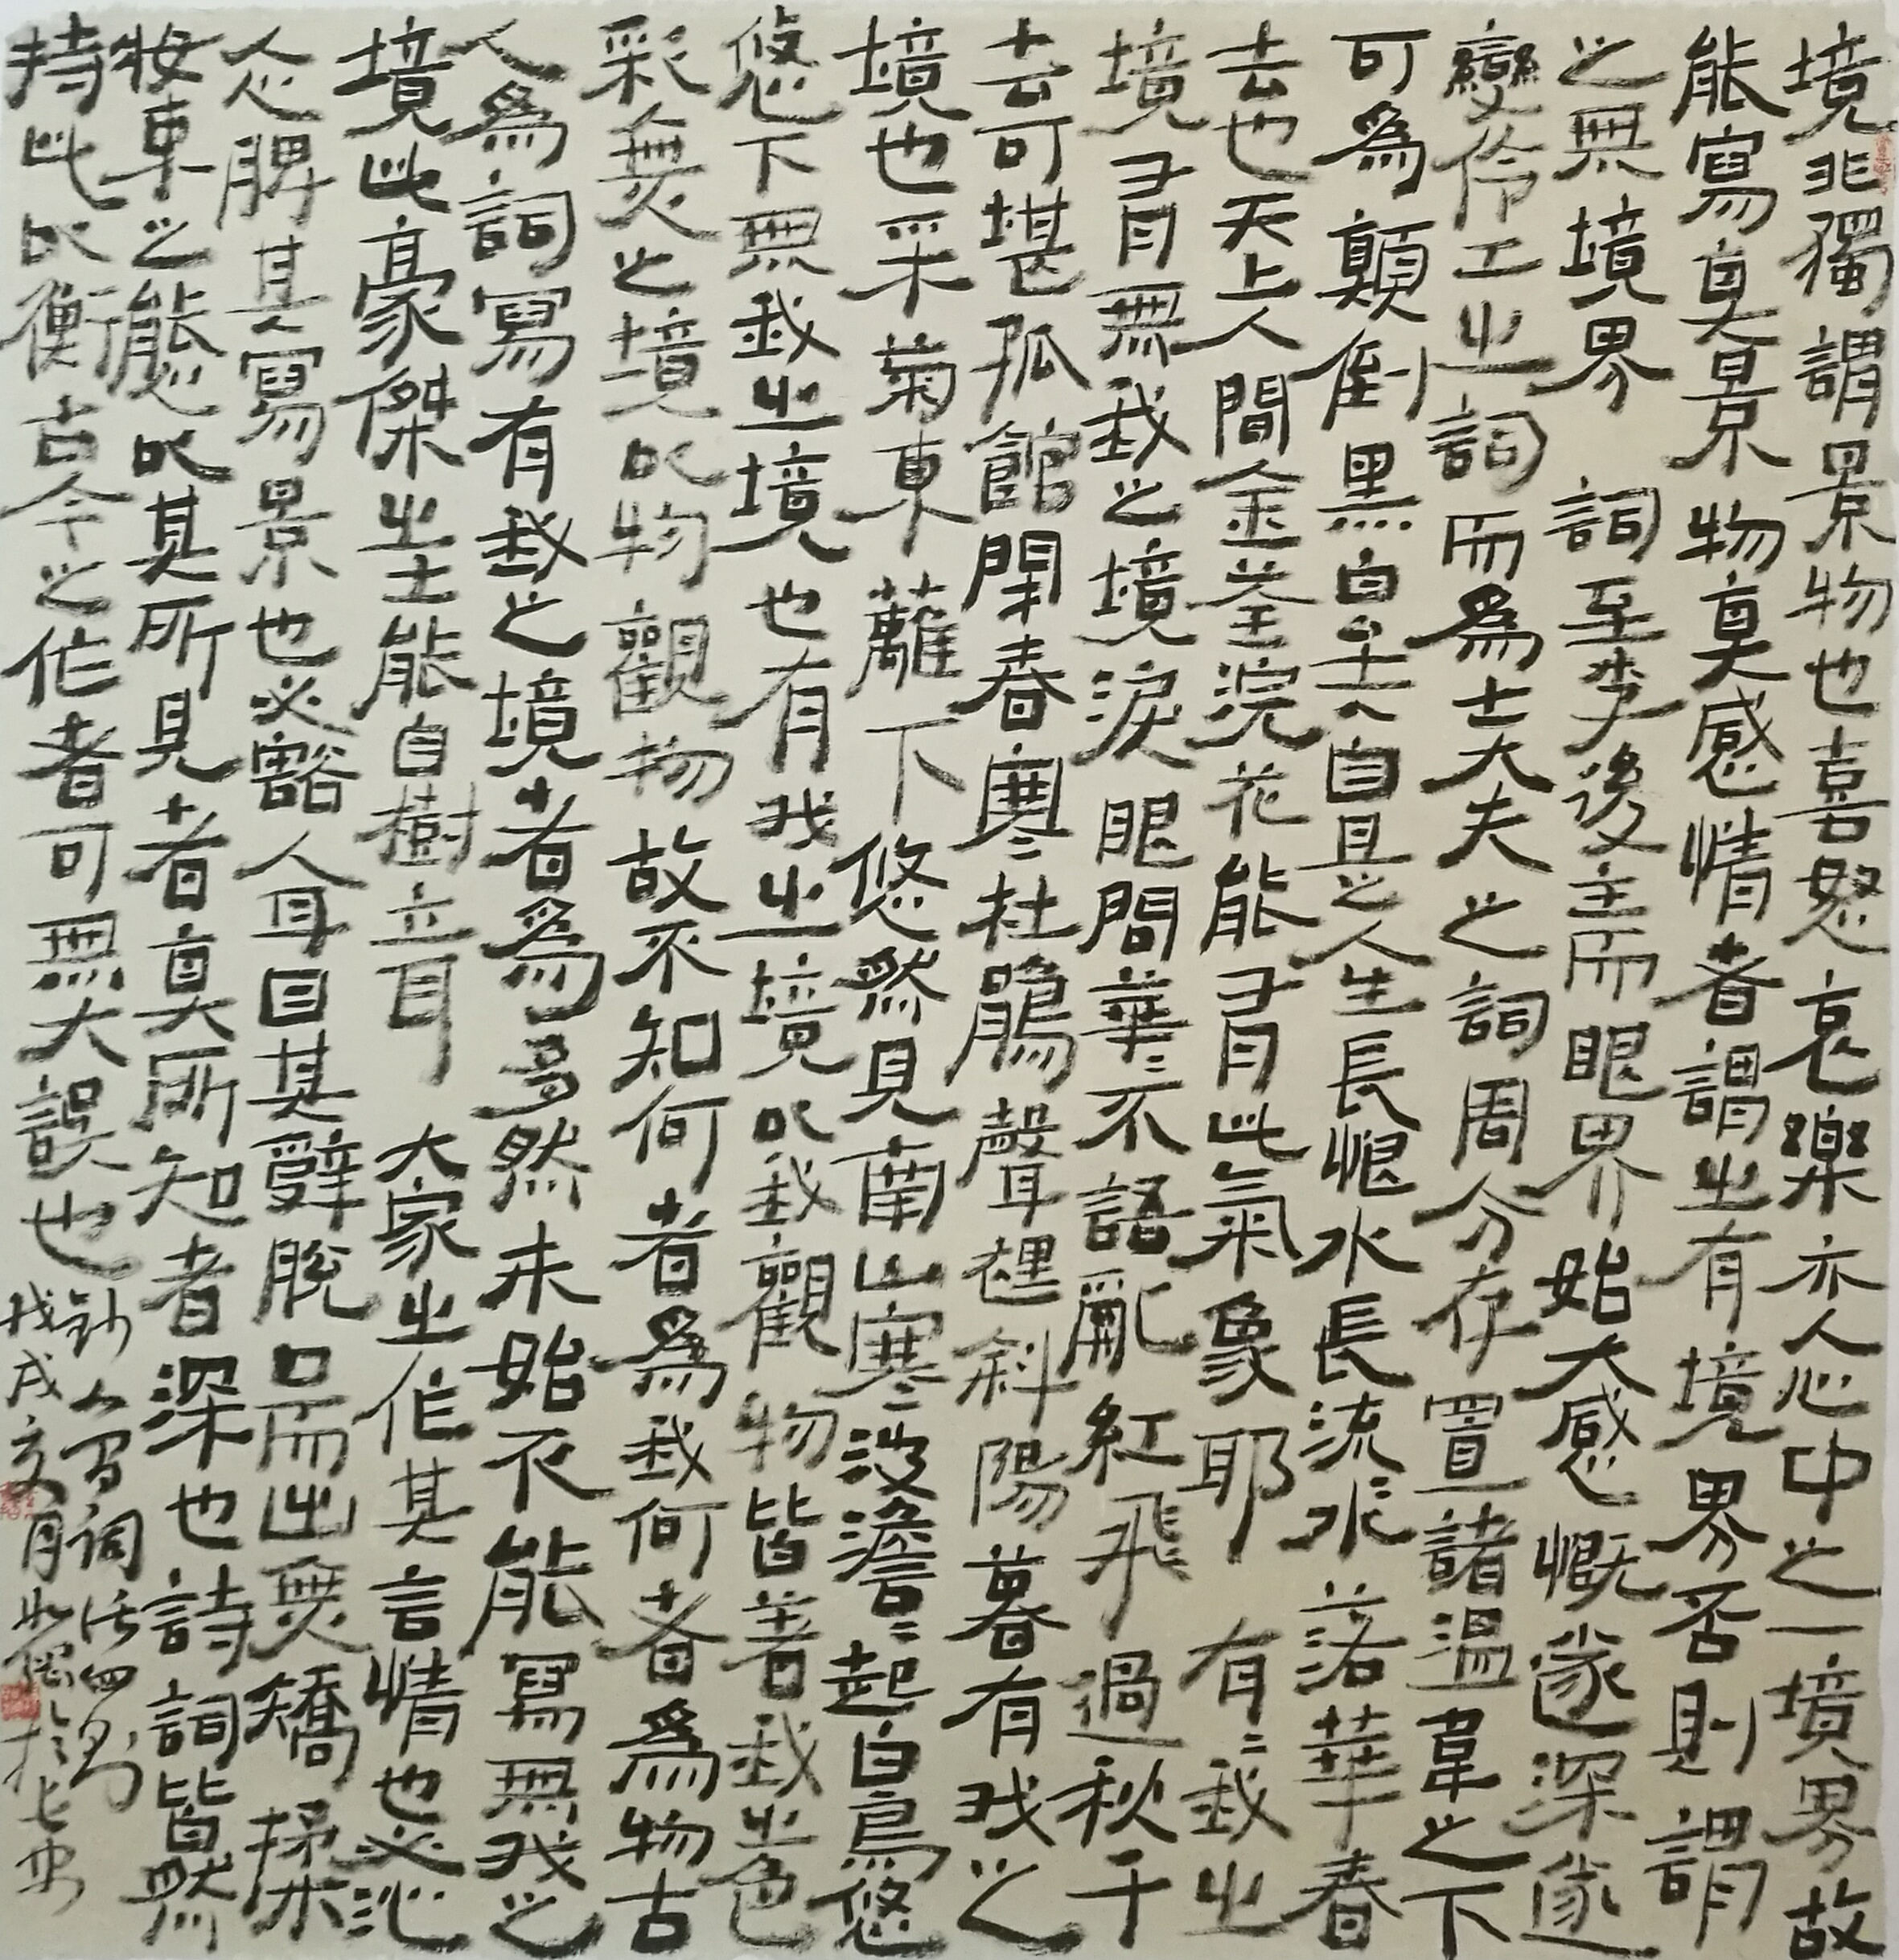 境非獨謂景物也喜怒哀樂亦人心中之一境界故
能寫真景物真感情者謂之有境界否則謂
之無境界 詞至李後主而眼界始大感慨遂深遂
變伶工之詞而為士大夫之詞周介存置諸温韋之下
可為顛倒黑白矣自是人生長恨水長流水落華春
去也天上人間金荃浣花能有此氣象耶 有有我之
境有無我之境淚眼問華華不語亂紅飛過秋千
去可堪孤館閉春寒杜鵑聲裡斜陽暮有我之
境也采菊東蘺下悠然見南山寒波澹澹起白鳥悠
悠下無我之境也有我之境以我觀物皆著我之色
彩無我之境以物觀物故不知何者為我何者為物古
人為詞寫有我之境者為多然未始不能寫無我之
境此豪傑之士能自樹立耳 大家之作其言情也必沁
人心脾其寫景也必豁人耳目其辭脫口而出無矯揉
妝束之態以其所見者真所知者深也詩詞皆然
持此以衡古今之作者可無大誤也
鈔人間詞話四則
戊戌夏月